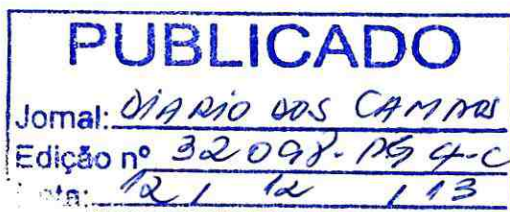 PUBLICADO
Jornal: DIARIO DOS CAMPOS
Edição nº 32098-PG 4-C
Data: 12 / 12 / 13